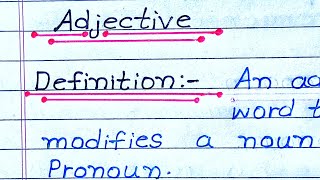 Adjective
Definition:- An
word
modifies a noun
Pronoun.